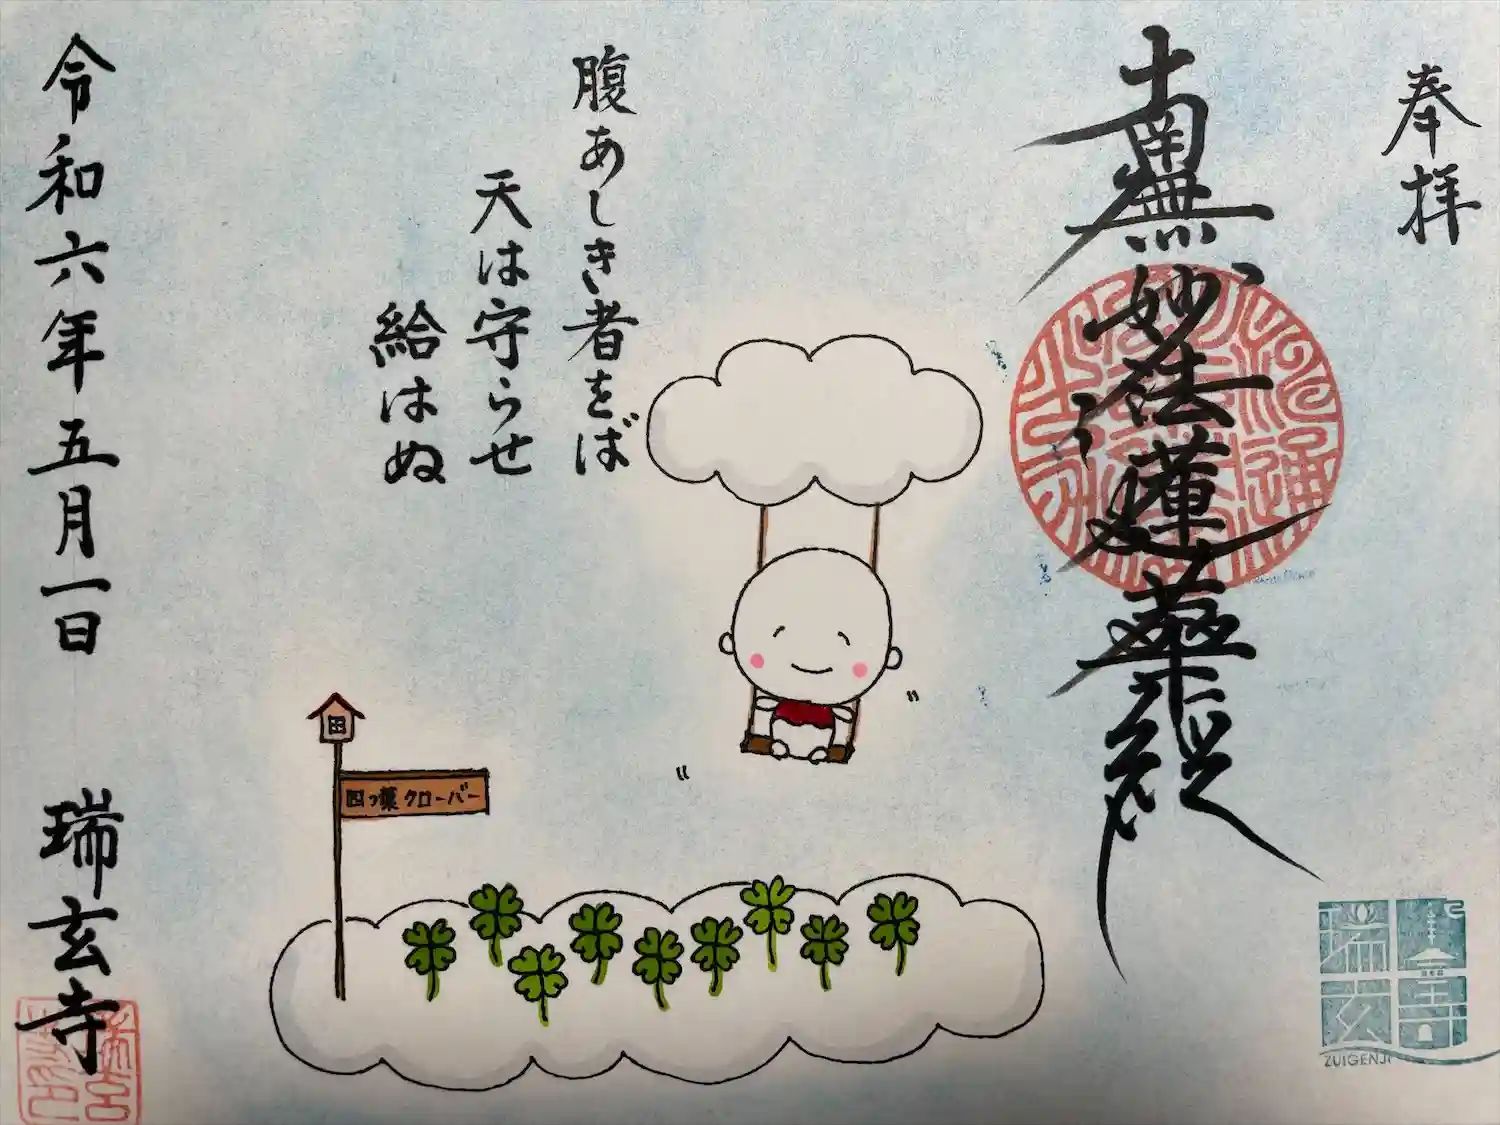 奉拝
南無妙法蓮華経
腹あしき者をば
天は守らせ
給はぬ
四つ葉クローバー
令和六年五月一日
瑞玄寺
瑞玄寺
ZUIGENJI